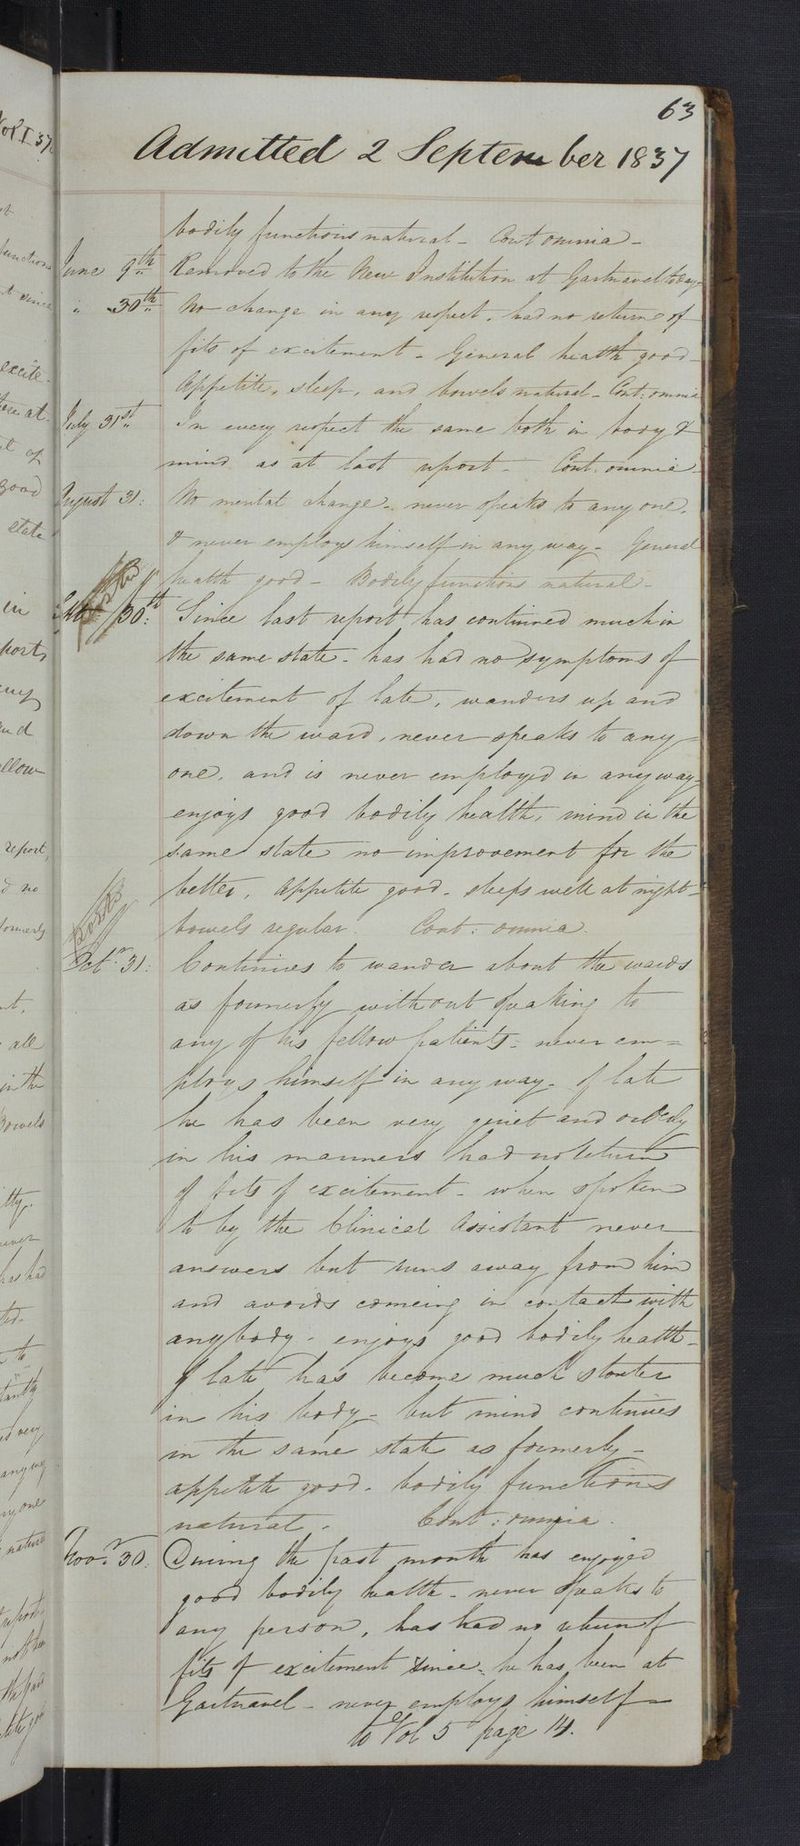 63
Admitted 2 September 1837
bodily functions natural - Cont omnia -
June 9th Removed to the New Institution at Gartnavel today -
" 30th No change in any respect, has no return of
fits of excitement - General health good -
Appetite, sleep, and bowels natural - Cont: omnia
July 31st In every respect the same both in body &
mind as at last report - Cont. omnia -
August 31: No mental change - never speaks to any one,
& never employs himself in any way - General
health good - Bodily functions natural -
30th: Since last report has continued much in
the same state - has had no symptoms of
excitement of late, wanders up and
down the ward, never speaks to any
one, and is never employed in any way -
enjoys good bodily health, mind in the
same state no improvement for the
better, Appetite good - sleeps well at night -
bowels regular. Cont: omnia.
Octr 31: Continues to wander about the wards
as formerly without speaking to
any of his fellow patients - never em=
ploys himself in any way - of late
he has been very quiet and orderly
in his manners had no return
of fits of excitement - when spoken
to by the Clinical Assistant never
answers but runs away from him
and avoids comeing in contact with
anybody - enjoys good bodily health -
of late has become much stouter
in his body - but mind continues
in the same state as formerly -
appetite good - bodily functions
natural - Cont: omnia.
Novr 30: During the past month has enjoyed
good bodily health - never speaks to
any person, has had no return of
fits of excitement since he has been at
Gartnavel - never employs himself -
to Vol 5 page 14.